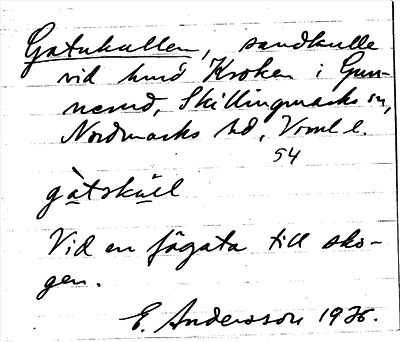 Gatukullen, sandkulle
vid hmd Kroken i Gun-
nerud, Skillingmarks sn,
Nordmarks hd, Vrml l.
54
gàtskùl̄l
Vid en fägata till sko-
gen.
E. Andersson 1976.